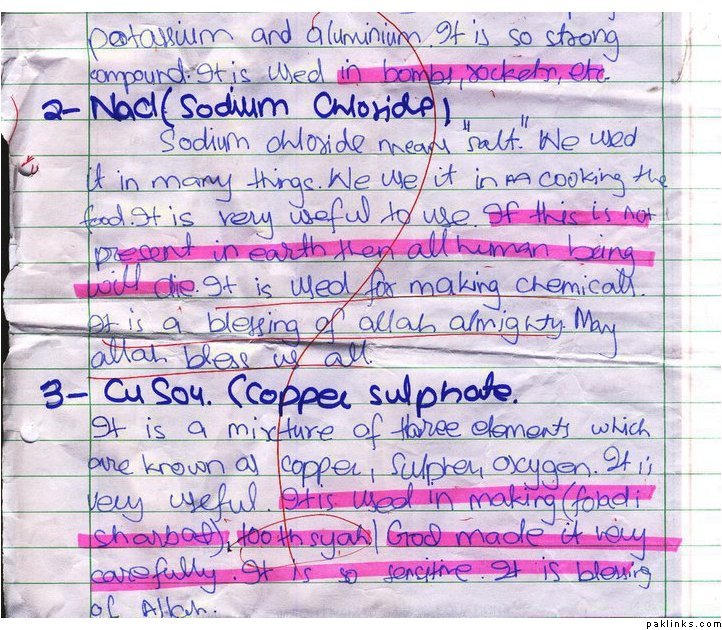 potassium and aluminium. It is so strong
compound. It is used in bombs, rockets, etc.
2- Nacl (Sodium Chloride)
Sodium chloride means "salt." We used
it in many things. We use it in cooking the
food. It is very useful to use. If this is not
present in earth then all human being
will die. It is used for making chemicals.
It is a blessing of allah almighty. May
allah bless us all.
3- Cu So4. (Copper sulphate.
It is a mixture of three elements which
are known as copper, Sulpher, oxygen. It is
very useful. It is used in making (fobdi
sharbat), tooth syah) God made it very
carefully. It is so sencitive. It is blessing
of Allah.
paklinks.com